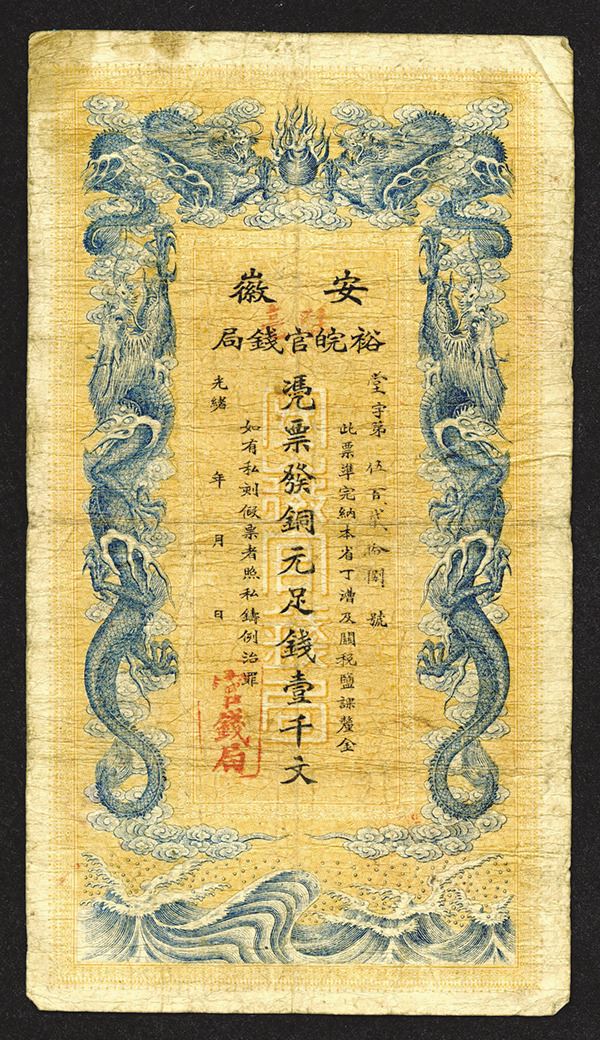 安徽
裕皖官錢局
堂字第伍百貳拾號
此票準完納本省丁漕及關稅鹽課釐金
憑票發銅元足錢壹千文
如有私刻假票者照私鑄例治罪
光緒 年 月 日
官錢局